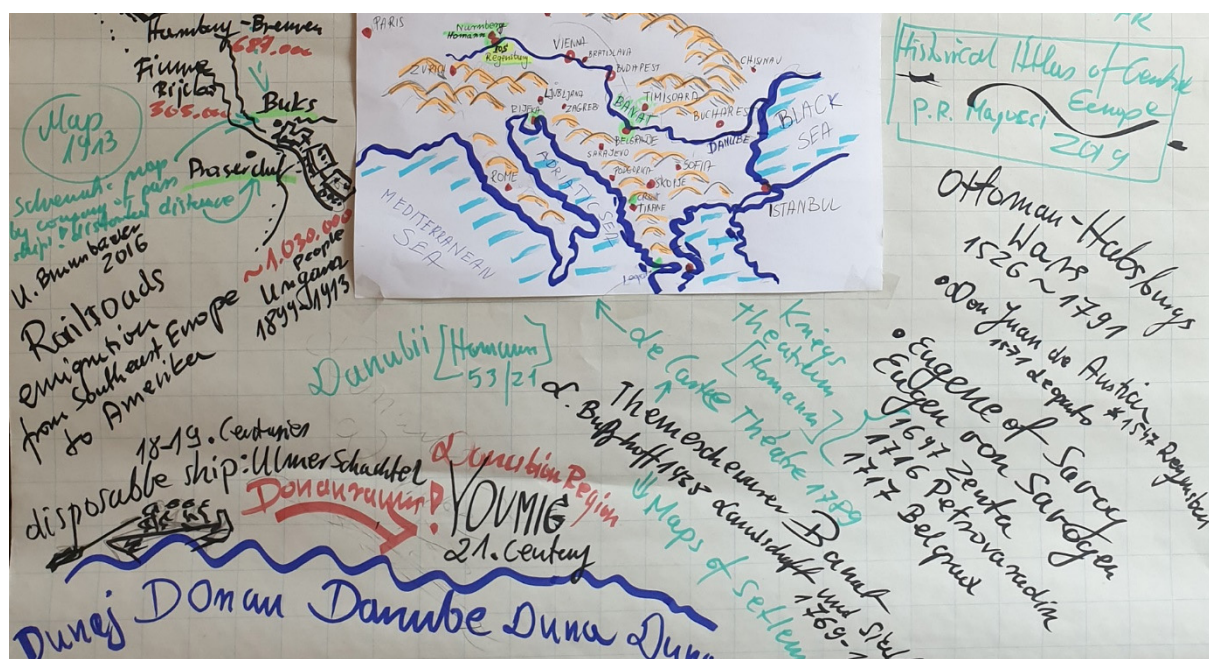 Hamburg-Bremen
687.000
Fiume
Rijeka
305.000
Buks
Map
1913
Praserchel
Schematic map
by company of pass
ship: distorted distance
U. Brunnbauer
2016
~1.030.000
People
Ungarn
1899-1913
Railroads
emigration
from Southeast Europe
to Amerika
PARIS
Nürnberg
Homann
IOS
Regensburg
ZURICH
VIENNA
BRATISLAVA
BUDAPEST
CHISINAU
LJUBLJANA
ZAGREB
RIJEKA
BANAT
TIMISOARA
BUCHAREST
BELGRADE
DANUBE
BLACK
SEA
SARAJEVO
PODGORICA
SOFIA
SKOPJE
ROME
ADRIATIC SEA
TIRANE
ISTANBUL
MEDITERRANEAN
SEA
Historical Atlas of Central
Europe
P.R. Magocsi
2019
Ottoman-Habsburgs
Wars
1526~1791
• Don Juan de Austria
1571 Lepanto *1547 Regensburg
• Eugene of Savoy
Eugen von Savoyen
1697 Zenta
1716 Petrovaradin
1717 Belgrad
Kriegs
theatrum
[Homann]
de Carte Théatre 1789
Danubii [Homann]
53/21
Themescherer Banat
L. Buchhoff 1935 Landschaft und
1769-
Maps of Setlem
18-19. Centuries
disposable ship: Ulmer Schachtel
Donauraum!
Danubian Region
YOUMIG
21. Century
Dunaj Donau Danube Duna